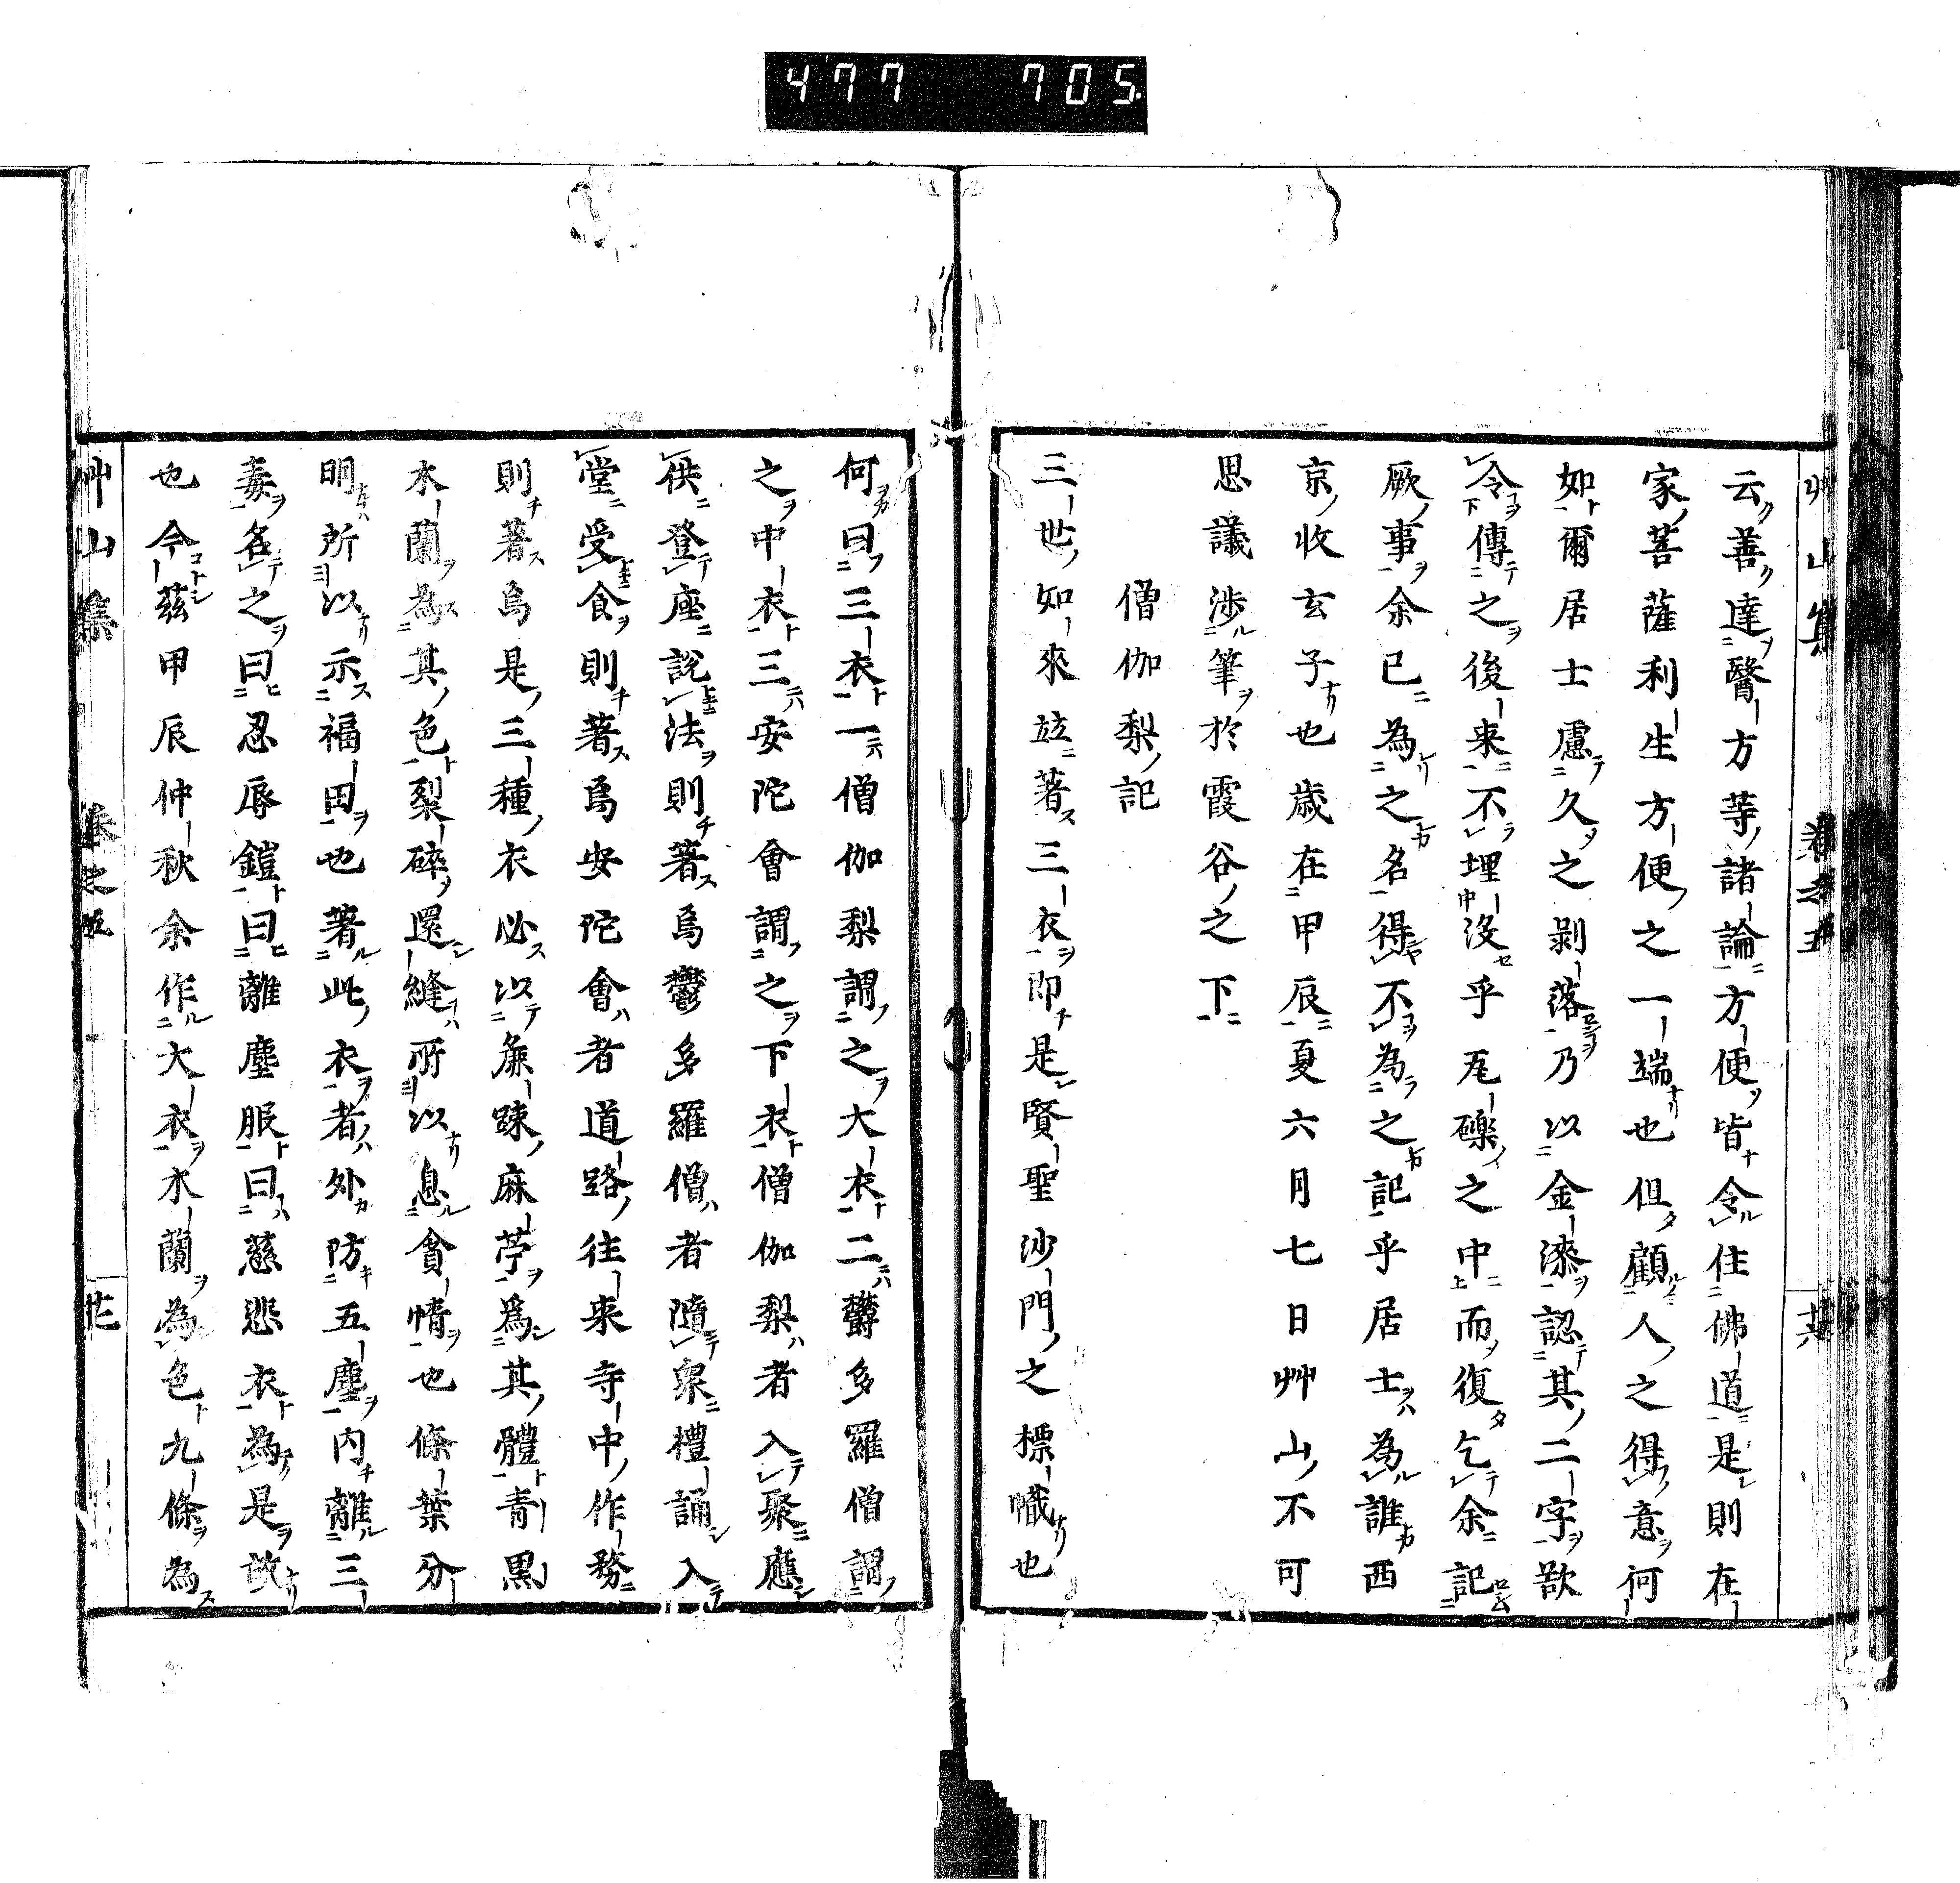 477 705.
艸山集 卷之五 廿六
云善達醫方等諸論方便皆令住佛道是則在
家菩薩利生方便之一端也但顧人之得意何
如爾居士慮久之剝落乃以金漆認其二字歆
令傳之後来不埋沒乎瓦礫之中而復乞余記
厥事余已為之名得不為之記乎居士為誰西
京收玄子也歲在甲辰夏六月七日艸山不可
思議涉筆於霞谷之下
僧伽梨記
三世如來竝著三衣即是賢聖沙門之標幟也
何曰三衣一僧伽梨謂之大衣二欝多羅僧謂
之中衣三安陀會謂之下衣僧伽梨者入聚應
供登座說法則著焉鬱多羅僧者隨衆禮誦入
堂受食則著焉安陀會者道路往来寺中作務
則著焉是三種衣必以麁踈麻苧爲其體青黒
木蘭為其色裂碎還縫所以息貪情也條葉分
明所以示福田也著此衣者外防五塵內離三
毒名之曰忍辱鎧曰離塵服曰慈悲衣為是故
也今茲甲辰仲秋余作大衣木蘭為色九條為
艸山集 卷之五 廿七